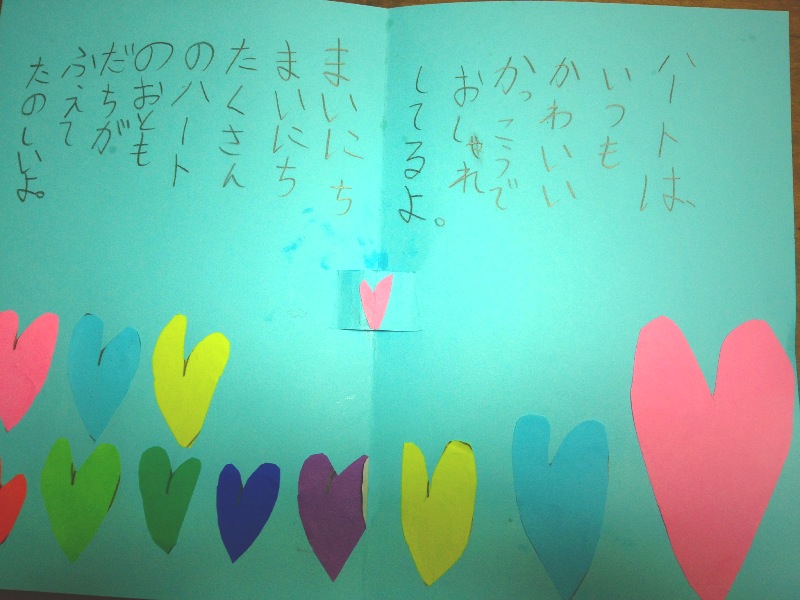 ハートは、
いつも
かわいい
かっこうで
おしゃれ
してるよ。
まいにち
まいにち
たくさん
のハート
のおとも
だちが
ふえて
たのしいよ。